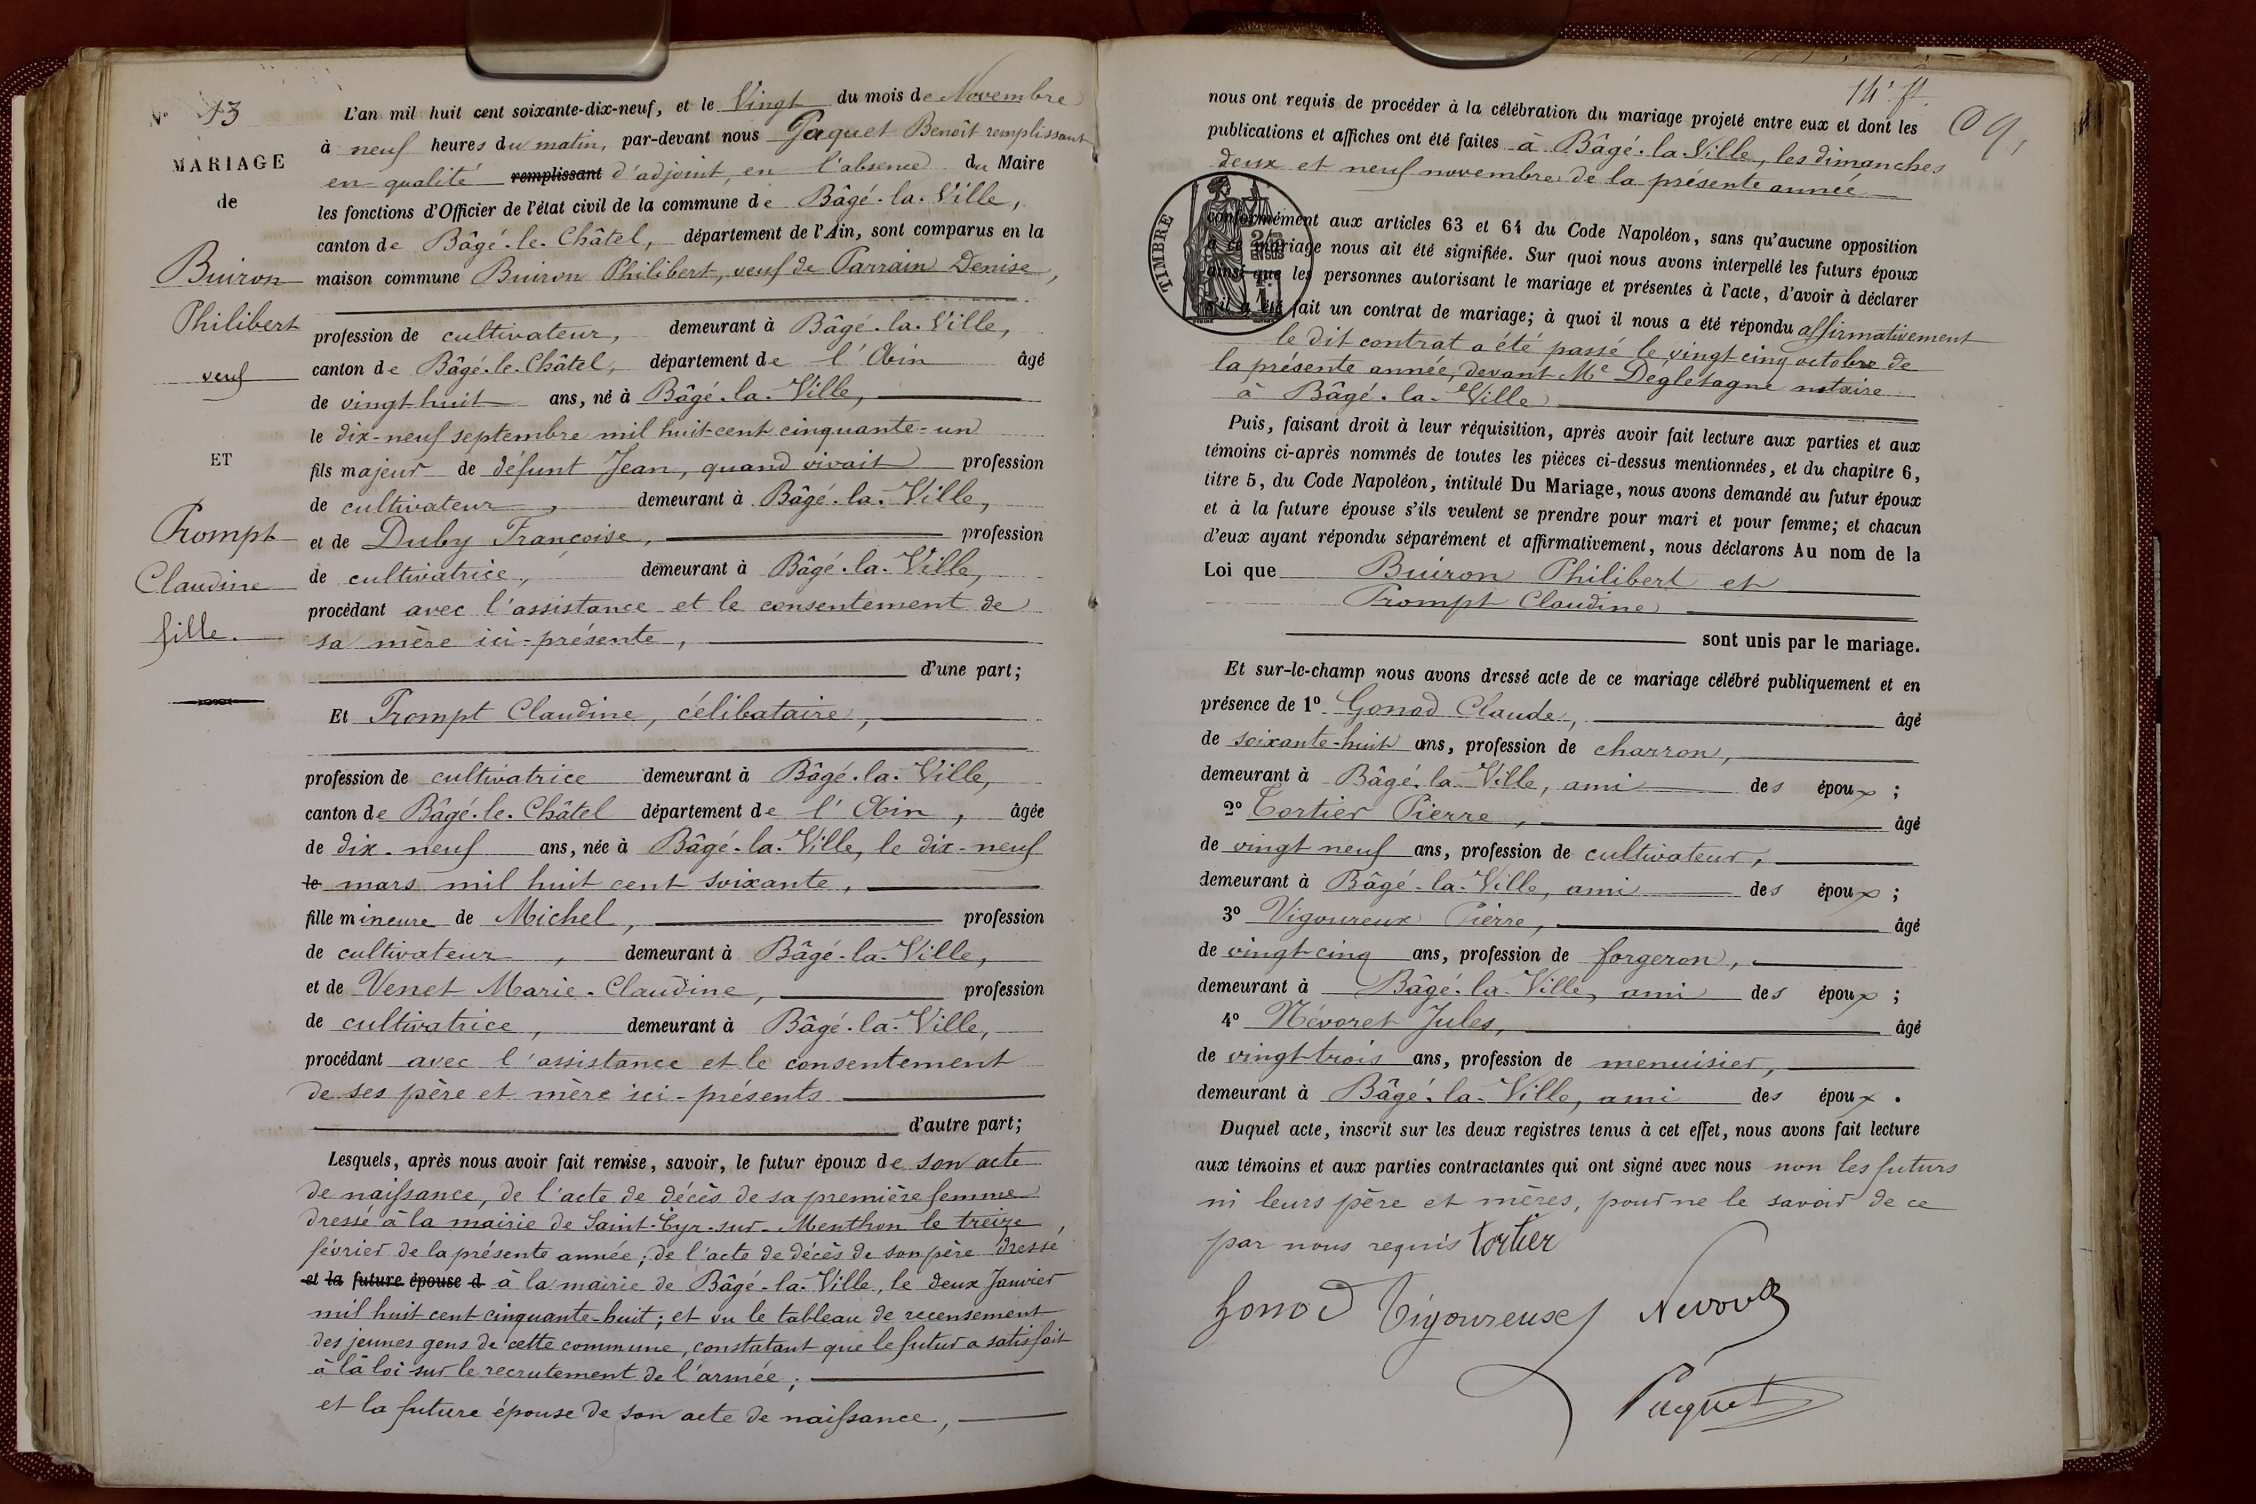 N° 13
MARIAGE
de
Buiron
Philibert
veuf
ET
Prompt
Claudine
fille.
L'an mil huit cent soixante-dix-neuf, et le Vingt du mois de Novembre
à neuf heures du matin, par-devant nous Paquet Benoît remplissant
en qualité remplissant d'adjoint, en l'absence du Maire
les fonctions d'Officier de l'état civil de la commune de Bâgé-la-Ville,
canton de Bâgé-le-Châtel, département de l'Ain, sont comparus en la
maison commune Buiron Philibert, veuf de Parrain Denise,
profession de cultivateur, demeurant à Bâgé-la-Ville,
canton de Bâgé-le-Châtel, département de l'Ain âgé
de vingt huit ans, né à Bâgé-la-Ville,
le dix-neuf septembre mil huit-cent cinquante-un
fils majeur de défunt Jean, quand vivait profession
de cultivateur, demeurant à Bâgé-la-Ville,
et de Duby Françoise, profession
de cultivatrice, demeurant à Bâgé-la-Ville,
procédant avec l'assistance et le consentement de
sa mère ici-présente,
d'une part;
Et Prompt Claudine, célibataire,
profession de cultivatrice demeurant à Bâgé-la-Ville,
canton de Bâgé-le-Châtel département de l'Ain, âgée
de dix-neuf ans, née à Bâgé-la-Ville, le dix-neuf
le mars mil huit cent soixante,
fille mineure de Michel, profession
de cultivateur, demeurant à Bâgé-la-Ville,
et de Venet Marie-Claudine, profession
de cultivatrice, demeurant à Bâgé-la-Ville,
procédant avec l'assistance et le consentement
de ses père et mère ici-présents
d'autre part;
Lesquels, après nous avoir fait remise, savoir, le futur époux de son acte
de naissance, de l'acte de décès de sa première femme
dressé à la mairie de Saint-Cyr-sur-Menthon le treize,
février de la présente année; de l'acte de décès de son père dressé
et la future épouse d à la mairie de Bâgé-la-Ville, le deux Janvier
mil huit cent cinquante-huit; et vu le tableau de recensement
des jeunes gens de cette commune, constatant que le futur a satisfait
à la loi sur le recrutement de l'armée;
et la future épouse de son acte de naissance,
14e ft.
nous ont requis de procéder à la célébration du mariage projeté entre eux et dont les
publications et affiches ont été faites à Bâgé-la-Ville, les dimanches
deux et neuf novembre de la présente année
TIMBRE
conformément aux articles 63 et 64 du Code Napoléon, sans qu'aucune opposition
à ce mariage nous ait été signifiée. Sur quoi nous avons interpellé les futurs époux
ainsi que les personnes autorisant le mariage et présentes à l'acte, d'avoir à déclarer
s'il a été fait un contrat de mariage; à quoi il nous a été répondu affirmativement
le dit contrat a été passé le vingt cinq octobre de
la présente année, devant Me Dégletagne notaire
à Bâgé-la-Ville
Puis, faisant droit à leur réquisition, après avoir fait lecture aux parties et aux
témoins ci-après nommés de toutes les pièces ci-dessus mentionnées, et du chapitre 6,
titre 5, du Code Napoléon, intitulé Du Mariage, nous avons demandé au futur époux
et à la future épouse s'ils veulent se prendre pour mari et pour femme; et chacun
d'eux ayant répondu séparément et affirmativement, nous déclarons Au nom de la
Loi que Buiron Philibert et
Prompt Claudine
sont unis par le mariage.
Et sur-le-champ nous avons dressé acte de ce mariage célébré publiquement et en
présence de 1° Gonod Claude, âgé
de soixante-huit ans, profession de charron,
demeurant à Bâgé-la-Ville, ami des époux;
2° Tortier Pierre, âgé
de vingt neuf ans, profession de cultivateur,
demeurant à Bâgé-la-Ville, ami des époux;
3° Vigoureux Pierre, âgé
de vingt-cinq ans, profession de forgeron,
demeurant à Bâgé-la-Ville, ami des époux;
4° Névoret Jules, âgé
de vingt-trois ans, profession de menuisier,
demeurant à Bâgé-la-Ville, ami des époux.
Duquel acte, inscrit sur les deux registres tenus à cet effet, nous avons fait lecture
aux témoins et aux parties contractantes qui ont signé avec nous non les futurs
ni leurs père et mères, pour ne le savoir de ce
par nous requis Tortier
Gonod Vigoureux Nevoret
Paquet